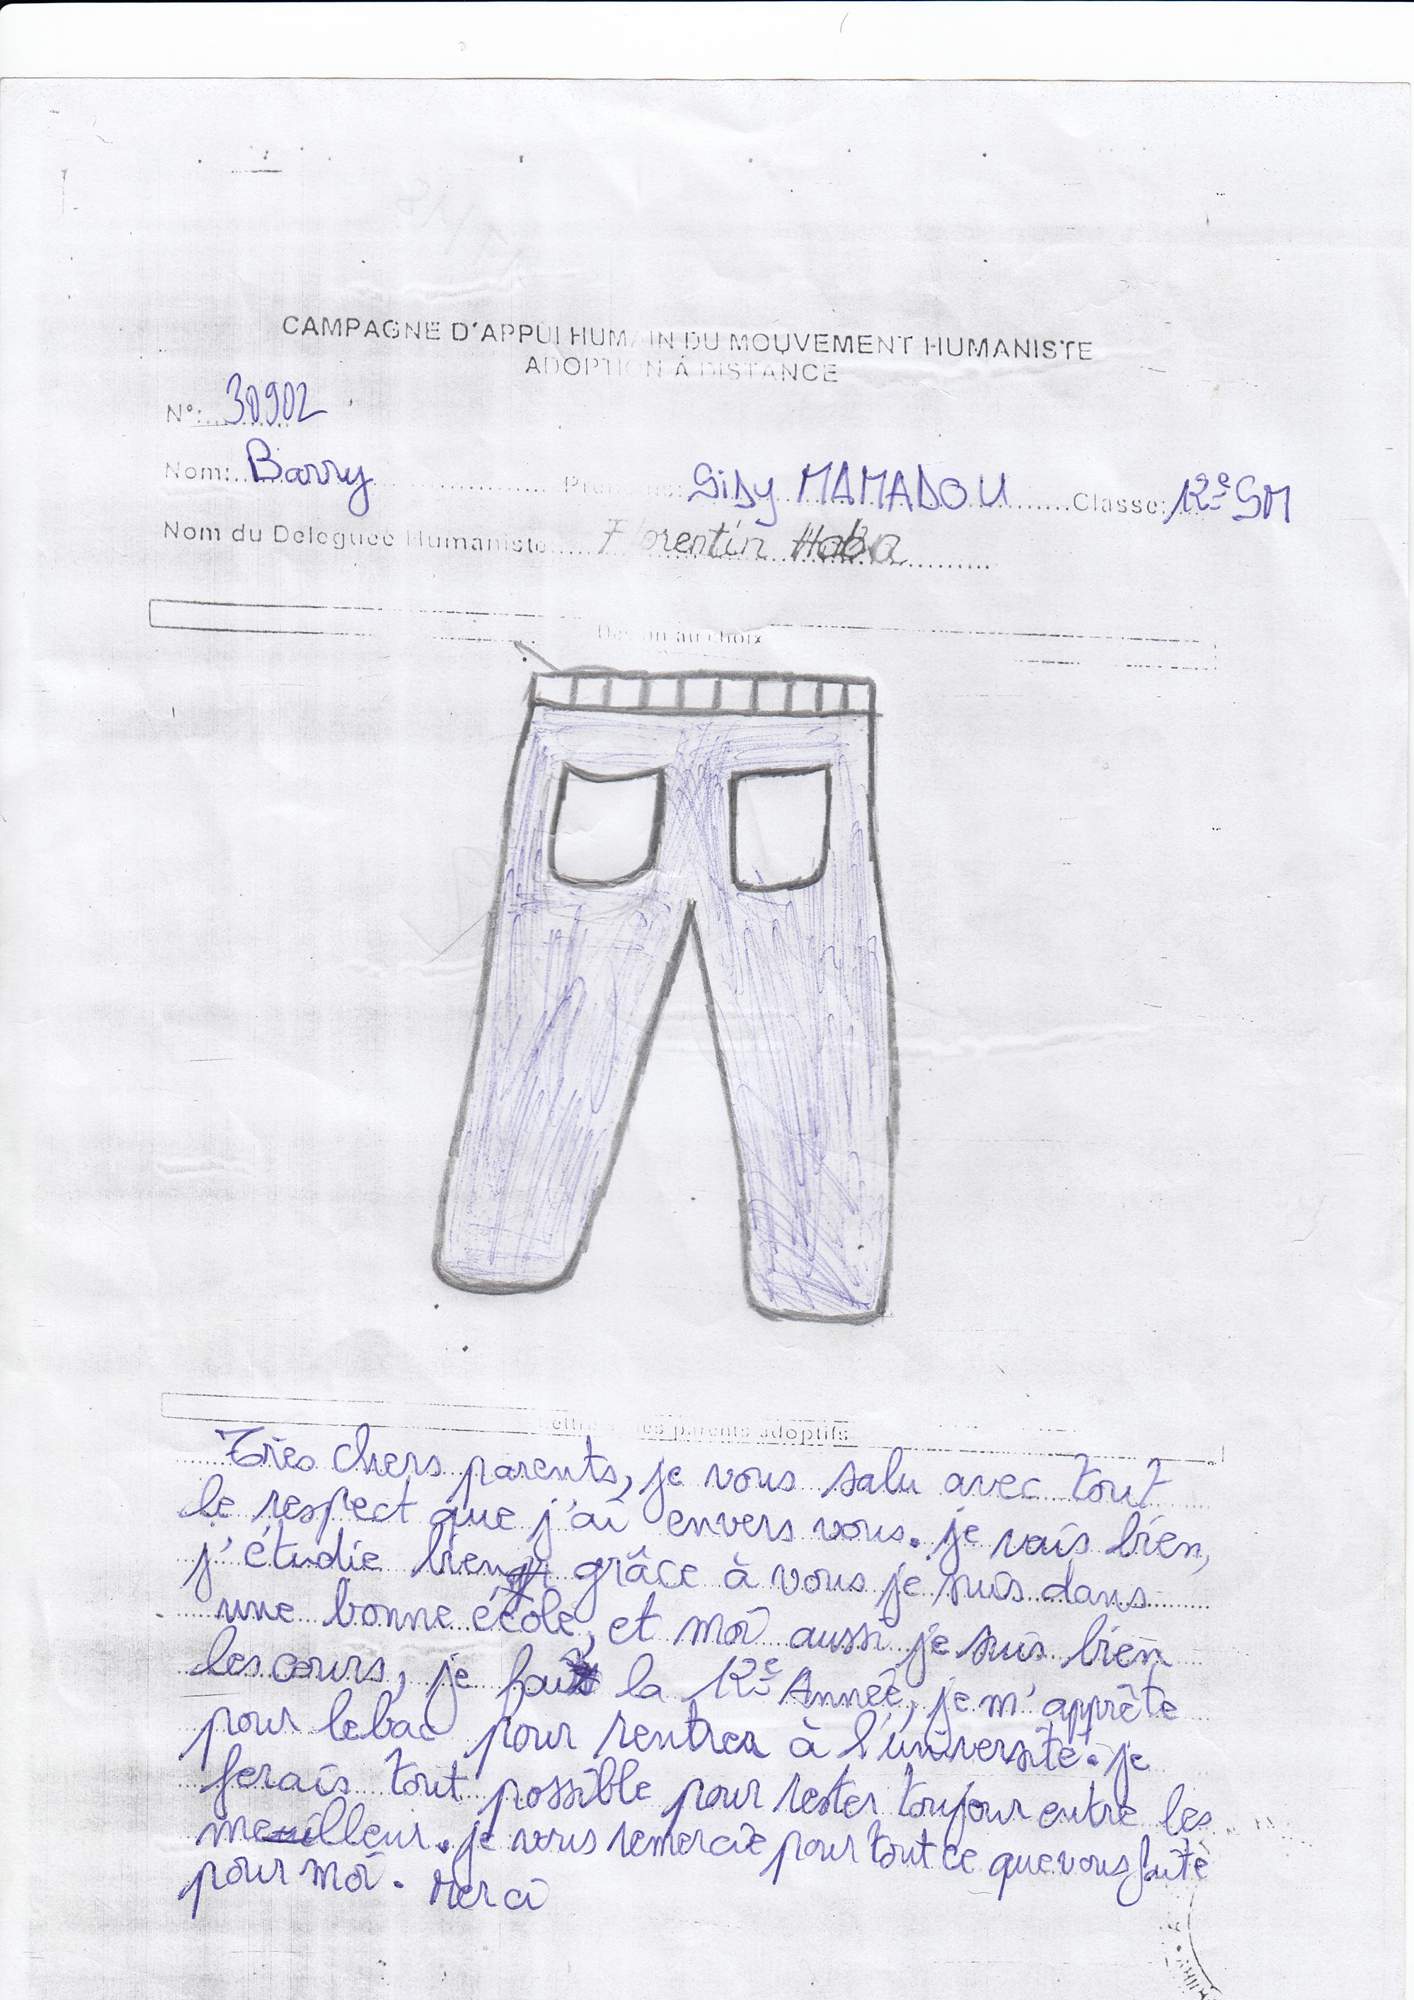 CAMPAGNE D'APPUI HUMAIN DU MOUVEMENT HUMANISTE
ADOPTION À DISTANCE
N°: 30902
Nom: Barry Prénoms: SiDy MAMADOU Classe: 12e SM
Nom du Délégué Humaniste Florentin Haba
Dessin au choix
Lettre des parents adoptifs
Très chers parents, je vous salu avec tout
le respect que j'ai envers vous. je vais bien,
j'étudie bien grâce à vous je suis dans
une bonne école, et moi aussi je suis bien
les cours, je fais la 12e Année, je m'apprête
pour le bac pour rentrer à l'université. je
ferais tout possible pour rester toujour entre les
meilleur. je vous remercie pour tout ce que vous faite
pour moi. Merci